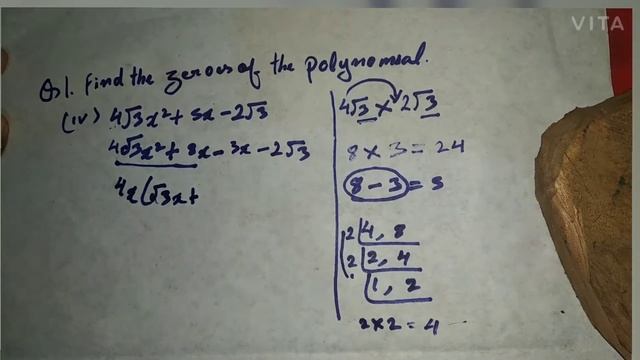 VITA
Q1. Find the zeroes of the polynomial.
(iv) 4√3x² + 5x - 2√3
4√3x² + 8x - 3x - 2√3
4x(√3x +
4√3 × 2√3
8 × 3 = 24
8 - 3 = 5
2 | 4, 8
2 | 2, 4
1, 2
2×2 = 4